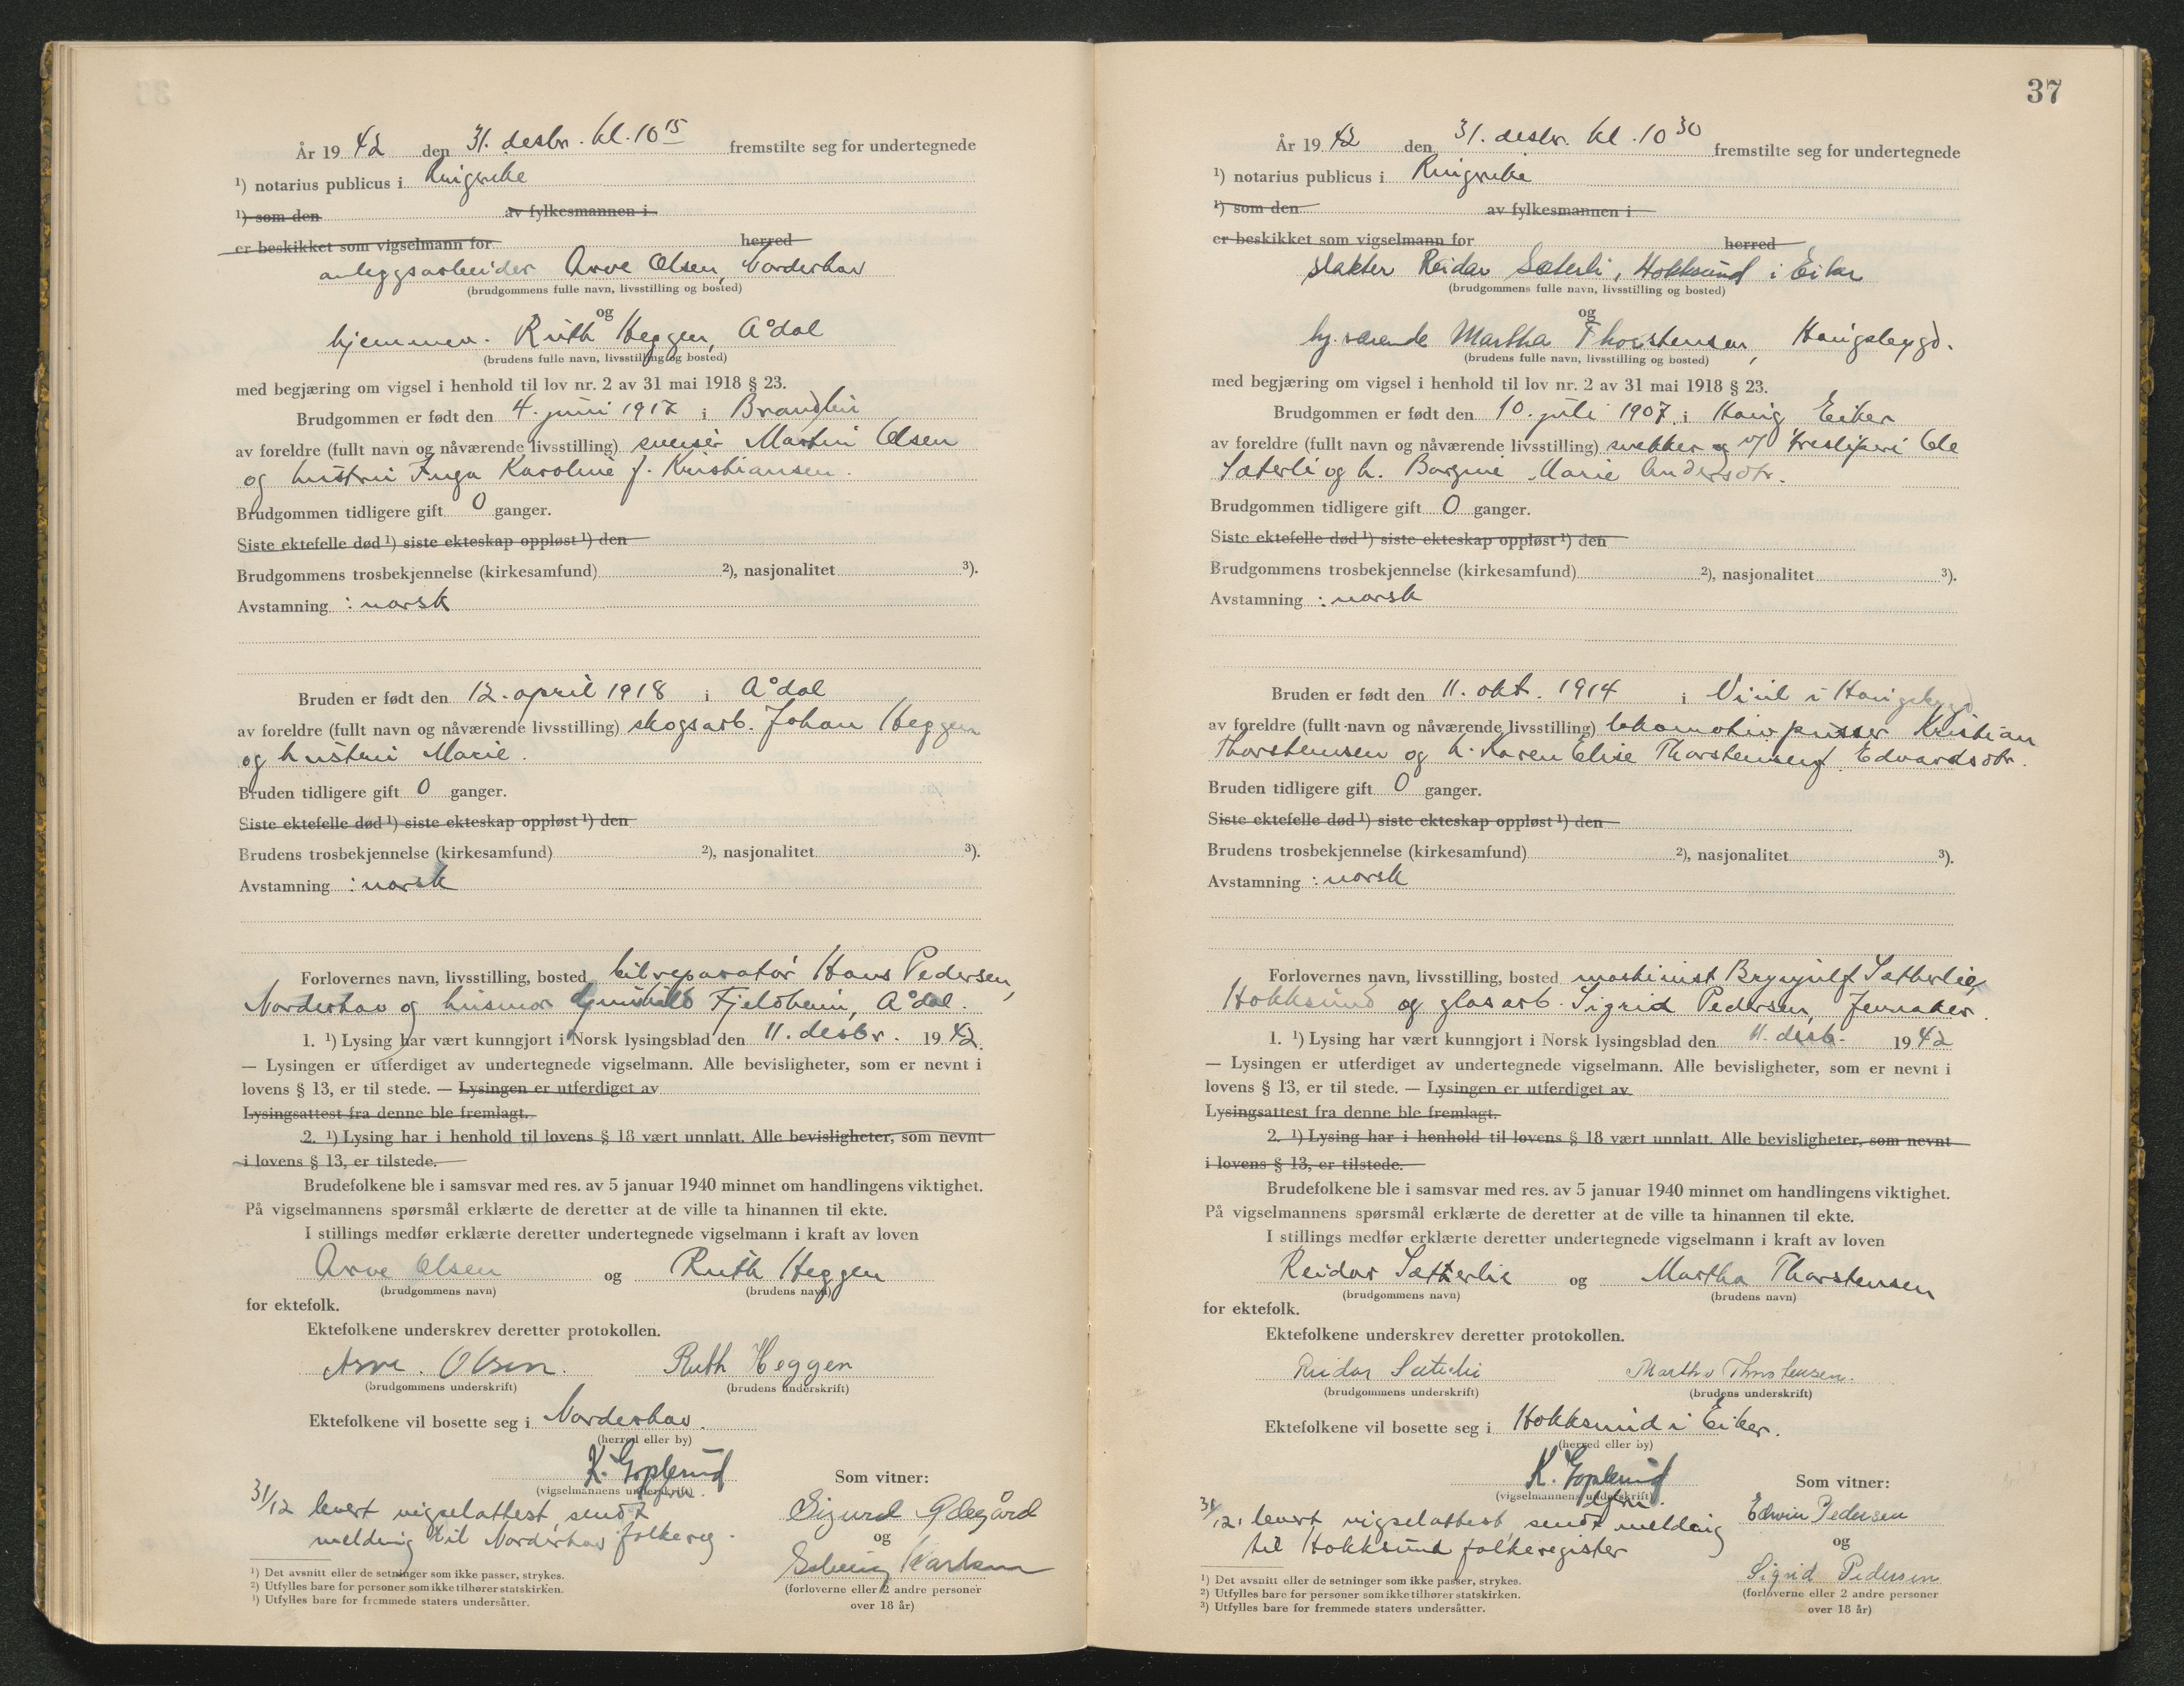 År 19 42 den 31. desbr. kl. 10 15 fremstilte seg for undertegnede
¹) notarius publicus i Ringerike
¹) som den av fylkesmannen i
er beskikket som vigselmann for herred
anleggsarbeider Arve Olsen, Norderhov
(brudgommens fulle navn, livsstilling og bosted)
og
hjemmev. Ruth Heggen, Ådal
(brudens fulle navn, livsstilling og bosted)
med begjæring om vigsel i henhold til lov nr. 2 av 31 mai 1918 § 23.
Brudgommen er født den 4. juni 1917 i
av foreldre (fullt navn og nåværende livsstilling) Martin Olsen
og hustru Inga Karoline f. Kristiansen.
Brudgommen tidligere gift 0 ganger.
Siste ektefelle død ¹) siste ekteskap oppløst ¹) den
Brudgommens trosbekjennelse (kirkesamfund) ²), nasjonalitet ³).
Avstamning : norsk
Bruden er født den 12. april 1918 i Ådal
av foreldre (fullt navn og nåværende livsstilling) skogsarb. Johan Heggen
og hustru Marie.
Bruden tidligere gift 0 ganger.
Siste ektefelle død ¹) siste ekteskap oppløst ¹) den
Brudens trosbekjennelse (kirkesamfund) ²), nasjonalitet ³).
Avstamning : norsk
Forlovernes navn, livsstilling, bosted bilreparatør Hans Pedersen,
Norderhov og husmor Gunhild Fjeldheim, Ådal.
1. ¹) Lysing har vært kunngjort i Norsk lysingsblad den 11. desbr. 19 42.
— Lysingen er utferdiget av undertegnede vigselmann. Alle bevisligheter, som er nevnt i
lovens § 13, er til stede. — Lysingen er utferdiget av
Lysingsattest fra denne ble fremlagt.
2. ¹) Lysing har i henhold til lovens § 18 vært unnlatt. Alle bevisligheter, som nevnt
i lovens § 13, er tilstede.
Brudefolkene ble i samsvar med res. av 5 januar 1940 minnet om handlingens viktighet.
På vigselmannens spørsmål erklærte de deretter at de ville ta hinannen til ekte.
I stillings medfør erklærte deretter undertegnede vigselmann i kraft av loven
Arve Olsen og Ruth Heggen
(brudgommens navn) (brudens navn)
for ektefolk.
Ektefolkene underskrev deretter protokollen.
Arve. Olsen. Ruth Heggen
(brudgommens underskrift) (brudens underskrift)
Ektefolkene vil bosette seg i Norderhov.
(herred eller by)
K. Goplerud
(vigselmannens underskrift) Som vitner:
31/12 levert vigselattest sendt
melding til Norderhov folkereg.
Sigurd Ødegård
og
Solveig Karlsen
(forloverne eller 2 andre personer
over 18 år)
¹) Det avsnitt eller de setninger som ikke passer, strykes.
²) Utfylles bare for personer som ikke tilhører statskirken.
³) Utfylles bare for fremmede staters undersåtter.
37
År 19 42 den 31. desbr. kl. 10 30 fremstilte seg for undertegnede
¹) notarius publicus i Ringerike
¹) som den av fylkesmannen i
er beskikket som vigselmann for herred
slakter Reidar Sæterli, Hokksund i Eiker
(brudgommens fulle navn, livsstilling og bosted)
og
hj. værende Martha Thorstensen, Haugsbygd.
(brudens fulle navn, livsstilling og bosted)
med begjæring om vigsel i henhold til lov nr. 2 av 31 mai 1918 § 23.
Brudgommen er født den 10. juli 1907 i Haug Eiker
av foreldre (fullt navn og nåværende livsstilling) snekker v/ tresliperi Ole
Sæterli og h. Borgine Marie Andersdtr.
Brudgommen tidligere gift 0 ganger.
Siste ektefelle død ¹) siste ekteskap oppløst ¹) den
Brudgommens trosbekjennelse (kirkesamfund) ²), nasjonalitet ³).
Avstamning : norsk
Bruden er født den 11. okt. 1914 i i Haugsbygd
av foreldre (fullt navn og nåværende livsstilling) lokomotivpusser Kristian
Thorstensen og h. Karen Elise Thorstensen f. Edvardsdtr.
Bruden tidligere gift 0 ganger.
Siste ektefelle død ¹) siste ekteskap oppløst ¹) den
Brudens trosbekjennelse (kirkesamfund) ²), nasjonalitet ³).
Avstamning : norsk
Forlovernes navn, livsstilling, bosted maskinist Brynjulf Sætherlie,
Hokksund og glasarb. Sigrid Pedersen, Jevnaker.
1. ¹) Lysing har vært kunngjort i Norsk lysingsblad den 11. desb. 19 42
— Lysingen er utferdiget av undertegnede vigselmann. Alle bevisligheter, som er nevnt i
lovens § 13, er til stede. — Lysingen er utferdiget av
Lysingsattest fra denne ble fremlagt.
2. ¹) Lysing har i henhold til lovens § 18 vært unnlatt. Alle bevisligheter, som nevnt
i lovens § 13, er tilstede.
Brudefolkene ble i samsvar med res. av 5 januar 1940 minnet om handlingens viktighet.
På vigselmannens spørsmål erklærte de deretter at de ville ta hinannen til ekte.
I stillings medfør erklærte deretter undertegnede vigselmann i kraft av loven
Reidar Sætterlie og Martha Thorstensen
(brudgommens navn) (brudens navn)
for ektefolk.
Ektefolkene underskrev deretter protokollen.
Reidar Sæterli Martha Thorstensen.
(brudgommens underskrift) (brudens underskrift)
Ektefolkene vil bosette seg i Hokksund i Eiker.
(herred eller by)
K. Goplerud
(vigselmannens underskrift) Som vitner:
31/12. levert vigselattest, sendt melding
til Hokksund folkeregister
Edwin Pedersen
og
Sigrid Pedersen
(forloverne eller 2 andre personer
over 18 år)
¹) Det avsnitt eller de setninger som ikke passer, strykes.
²) Utfylles bare for personer som ikke tilhører statskirken.
³) Utfylles bare for fremmede staters undersåtter.